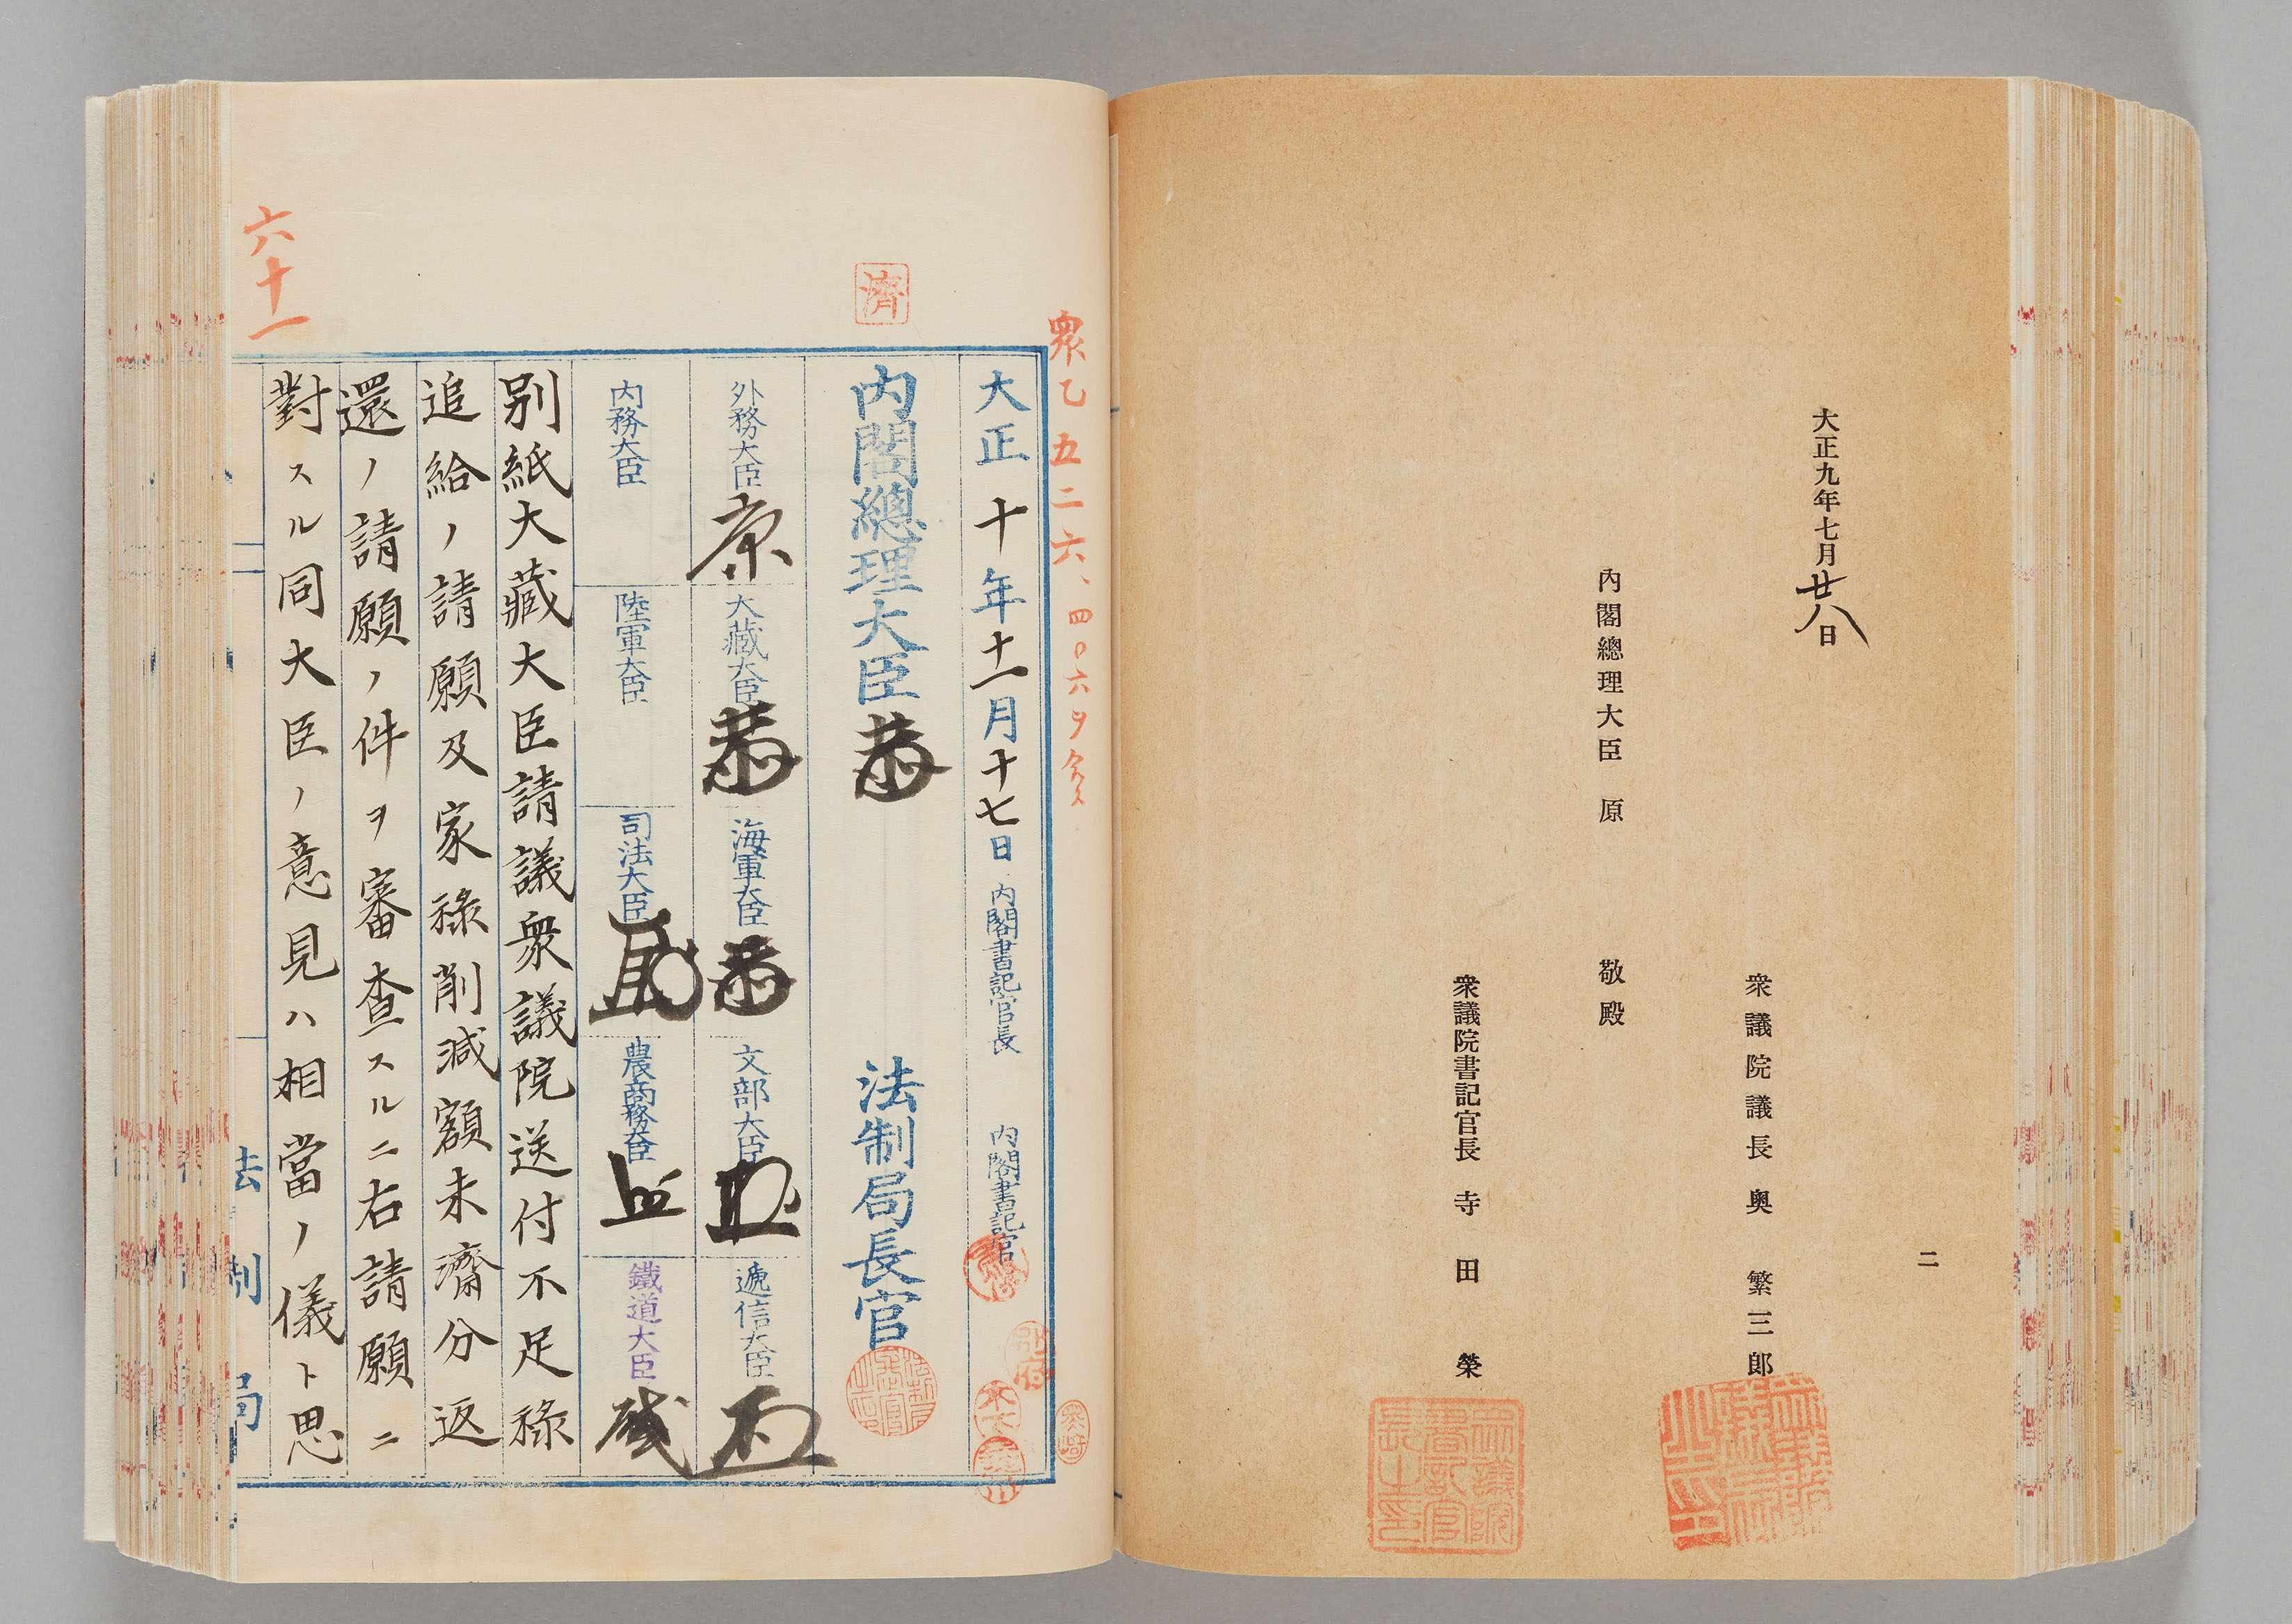 大正九年七月廿八日
衆議院議長 奥 繁三郎
內閣總理大臣 原 敬殿
衆議院書記官長 寺田 榮
二
衆乙五二六、四〇六ヲ含ム
大正十年十一月十七日 內閣書記官長 內閣書記官
濟
內閣總理大臣 法制局長官
外務大臣 大藏大臣 海軍大臣 文部大臣 遞信大臣
內務大臣 陸軍大臣 司法大臣 農商務大臣 鐵道大臣
別紙大藏大臣請議衆議院送付不足祿
追給ノ請願及家祿削減額未濟分返
還ノ請願ノ件ヲ審査スルニ右請願ニ
對スル同大臣ノ意見ハ相當ノ儀ト思
六十一
法制局